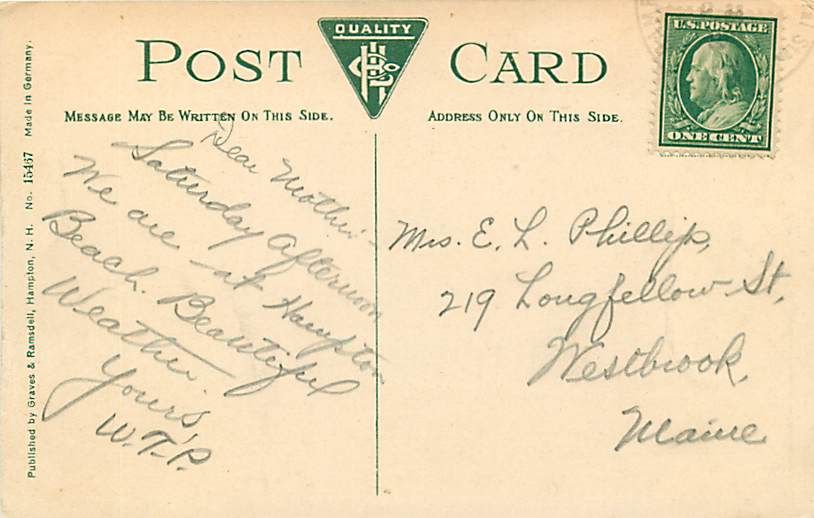 POST CARD
QUALITY
MESSAGE MAY BE WRITTEN ON THIS SIDE.
ADDRESS ONLY ON THIS SIDE.
U.S. POSTAGE
ONE CENT
Published by Graves & Ramsdell, Hampton, N. H. No. 15467 Made in Germany.
Dear Mother—
Saturday Afternoon
We are at Hampton
Beach. Beautiful
Weather.
Yours,
W.T.P.
Mrs. E. L. Phillips,
219 Longfellow St,
Westbrook,
Maine